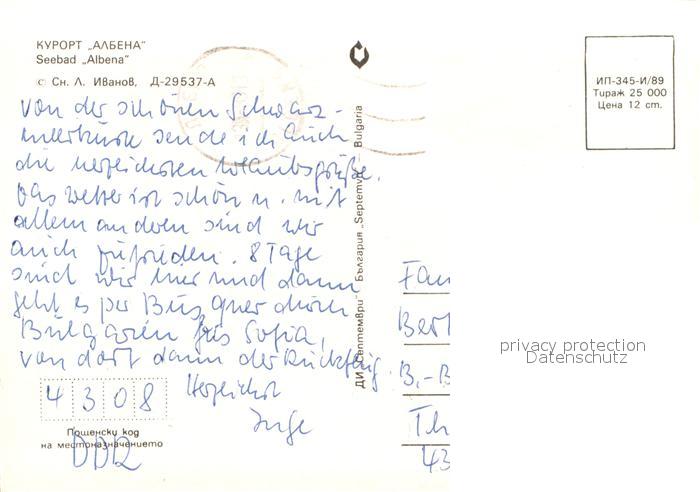 КУРОРТ „АЛБЕНА“
Seebad „Albena“
© Сн. Л. Иванов, Д-29537-А
von der schönen Schwarz-
meerküste sende ich Euch
die herzlichsten Urlaubsgrüße.
Das Wetter ist schön u. mit
allem anderen sind wir
auch zufrieden. 8 Tage
sind wir hier und dann
geht es per Bus quer durch
Bulgarien bis Sofia,
von dort dann der Rückflug.
Herzlichst
Inge
4308
Пощенски код
на местоназначението
DDR
ДИ „Септември“ България „Septemvri“ Bulgaria
ИП-345-И/89
Тираж 25 000
Цена 12 ст.
Fam
Bert
B.-B
Th
43
privacy protection
Datenschutz